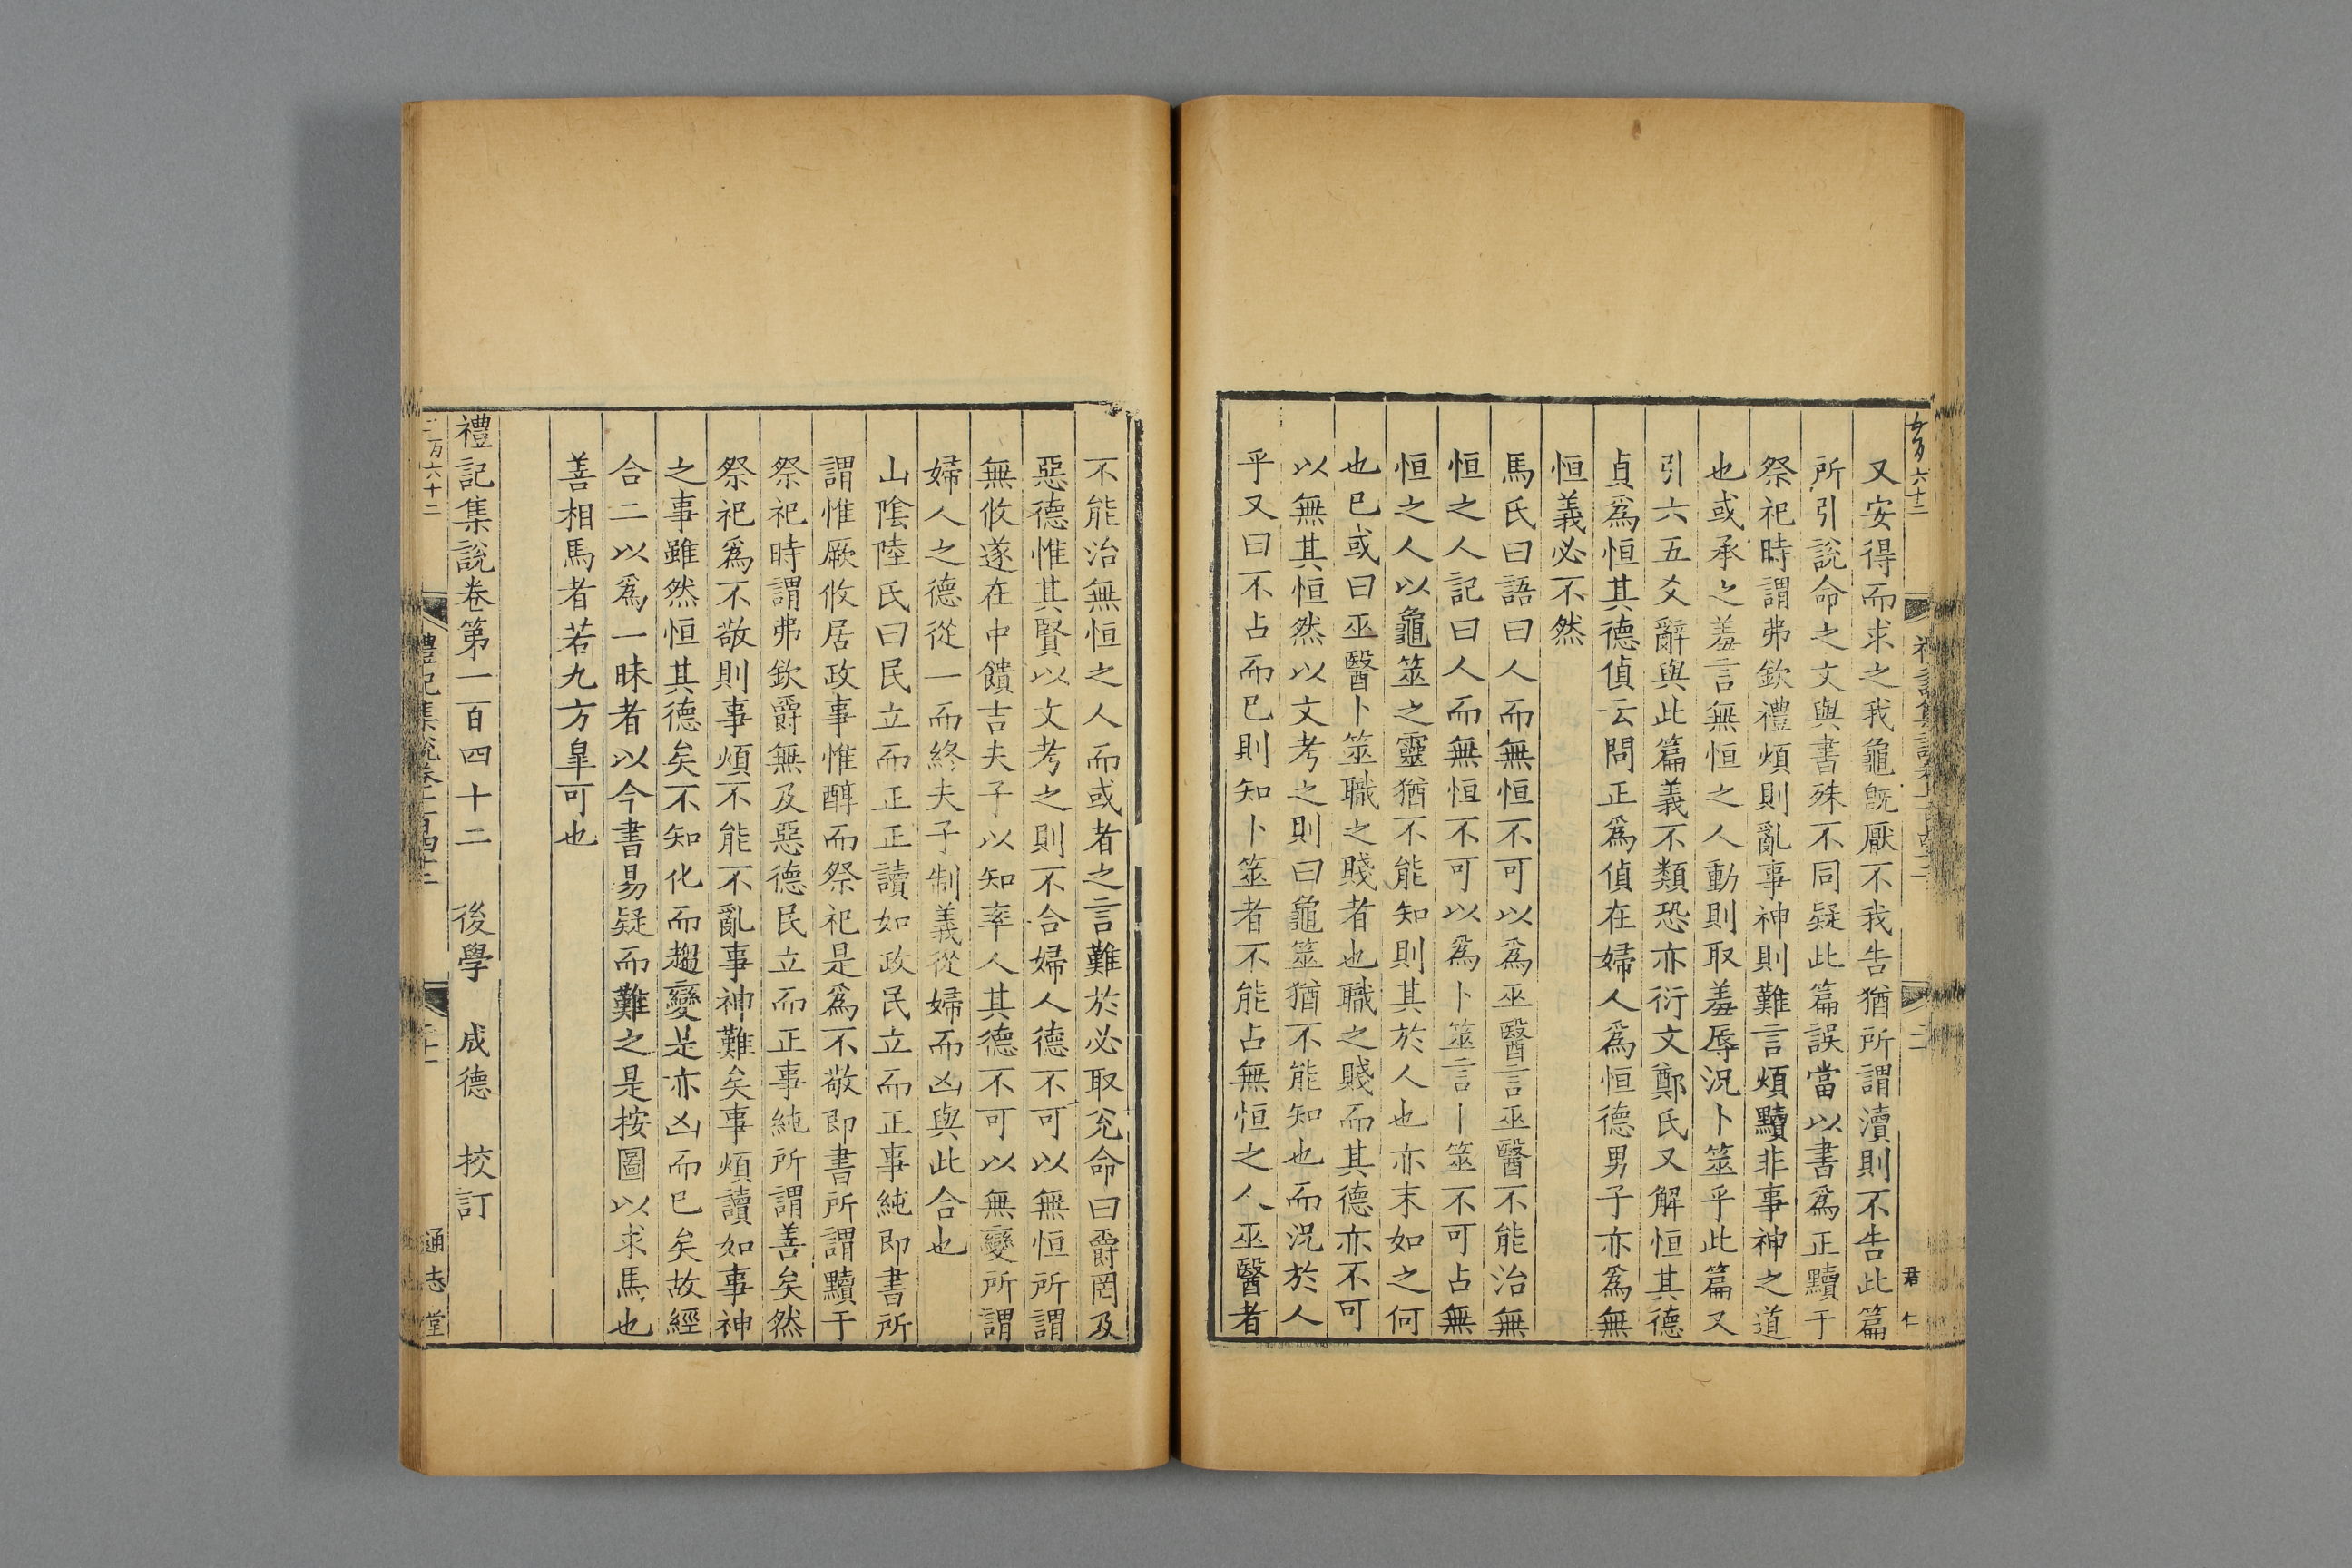 又安得而求之我龜旣厭不我告猶所謂瀆則不告此篇
所引說命之文與書殊不同疑此篇誤當以書爲正黷于
祭祀時謂弗欽禮煩則亂事神則難言煩黷非事神之道
也或承之羞言無恒之人動則取羞辱況卜筮乎此篇又
引六五爻辭與此篇義不類恐亦衍文鄭氏又解恒其德
貞爲恒其德偵云問正爲偵在婦人爲恒德男子亦爲無
恒義必不然
馬氏曰語曰人而無恒不可以爲巫醫言巫醫不能治無
恒之人記曰人而無恒不可以爲卜筮言卜筮不可占無
恒之人以龜筮之靈猶不能知則其於人也亦末如之何
也已或曰巫醫卜筮職之賤者也職之賤而其德亦不可
以無其恒然以文考之則曰龜筮猶不能知也而況於人
乎又曰不占而已則知卜筮者不能占無恒之人巫醫者
不能治無恒之人而或者之言難於必取兊命曰爵罔及
惡德惟其賢以文考之則不合婦人德不可以無恒所謂
無攸遂在中饋吉夫子以知率人其德不可以無變所謂
婦人之德從一而終夫子制義從婦而凶與此合也
山陰陸氏曰民立而正正讀如政民立而正事純即書所
謂惟厥攸居政事惟醇而祭祀是爲不敬即書所謂黷于
祭祀時謂弗欽爵無及惡德民立而正事純所謂善矣然
祭祀爲不敬則事煩不能不亂事神難矣事煩讀如事神
之事雖然恒其德矣不知化而趨變是亦凶而已矣故經
合二以爲一昧者以今書易疑而難之是按圖以求馬也
善相馬者若九方臯可也
禮記集說卷第一百四十二 後學 成德 挍訂
二百六十二
通志堂
君仁